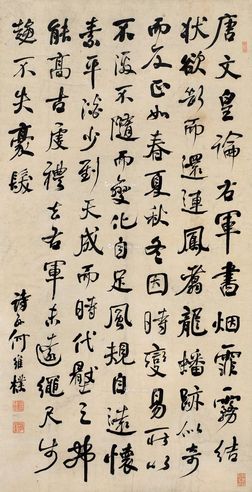 唐文皇論右軍書烟霏霧結
狀欲斷而還連鳳翥龍蟠跡似奇
而反正如春夏秋冬因時變易所以
不復不隨而變化自足風規自遠懷
素平淡少到天成而時代壓之弗
能高古虔禮去右軍未遠繩尺步
趨不失豪髮
詩孫何維樸